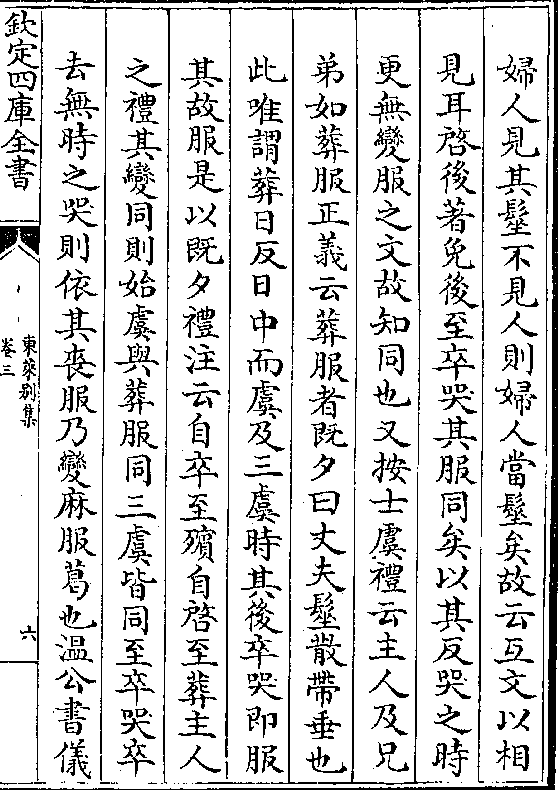 婦人見其髽不見人則婦人當髽矣故云互文以相
見耳啓後著免後至卒哭其服同矣以其反哭之時
更無變服之文故知同也又按士虞禮云主人及兄
弟如葬服正義云葬服者既夕曰丈夫髽散帶垂也
此唯謂葬日反日中而虞及三虞時其後卒哭即服
其故服是以既夕禮注云自卒至殯自啓至葬主人
之禮其變同則始虞與葬服同三虞皆同至卒哭卒
去無時之哭則依其喪服乃變麻服葛也温公書儀
欽定四庫全書
東萊别集
卷三
六